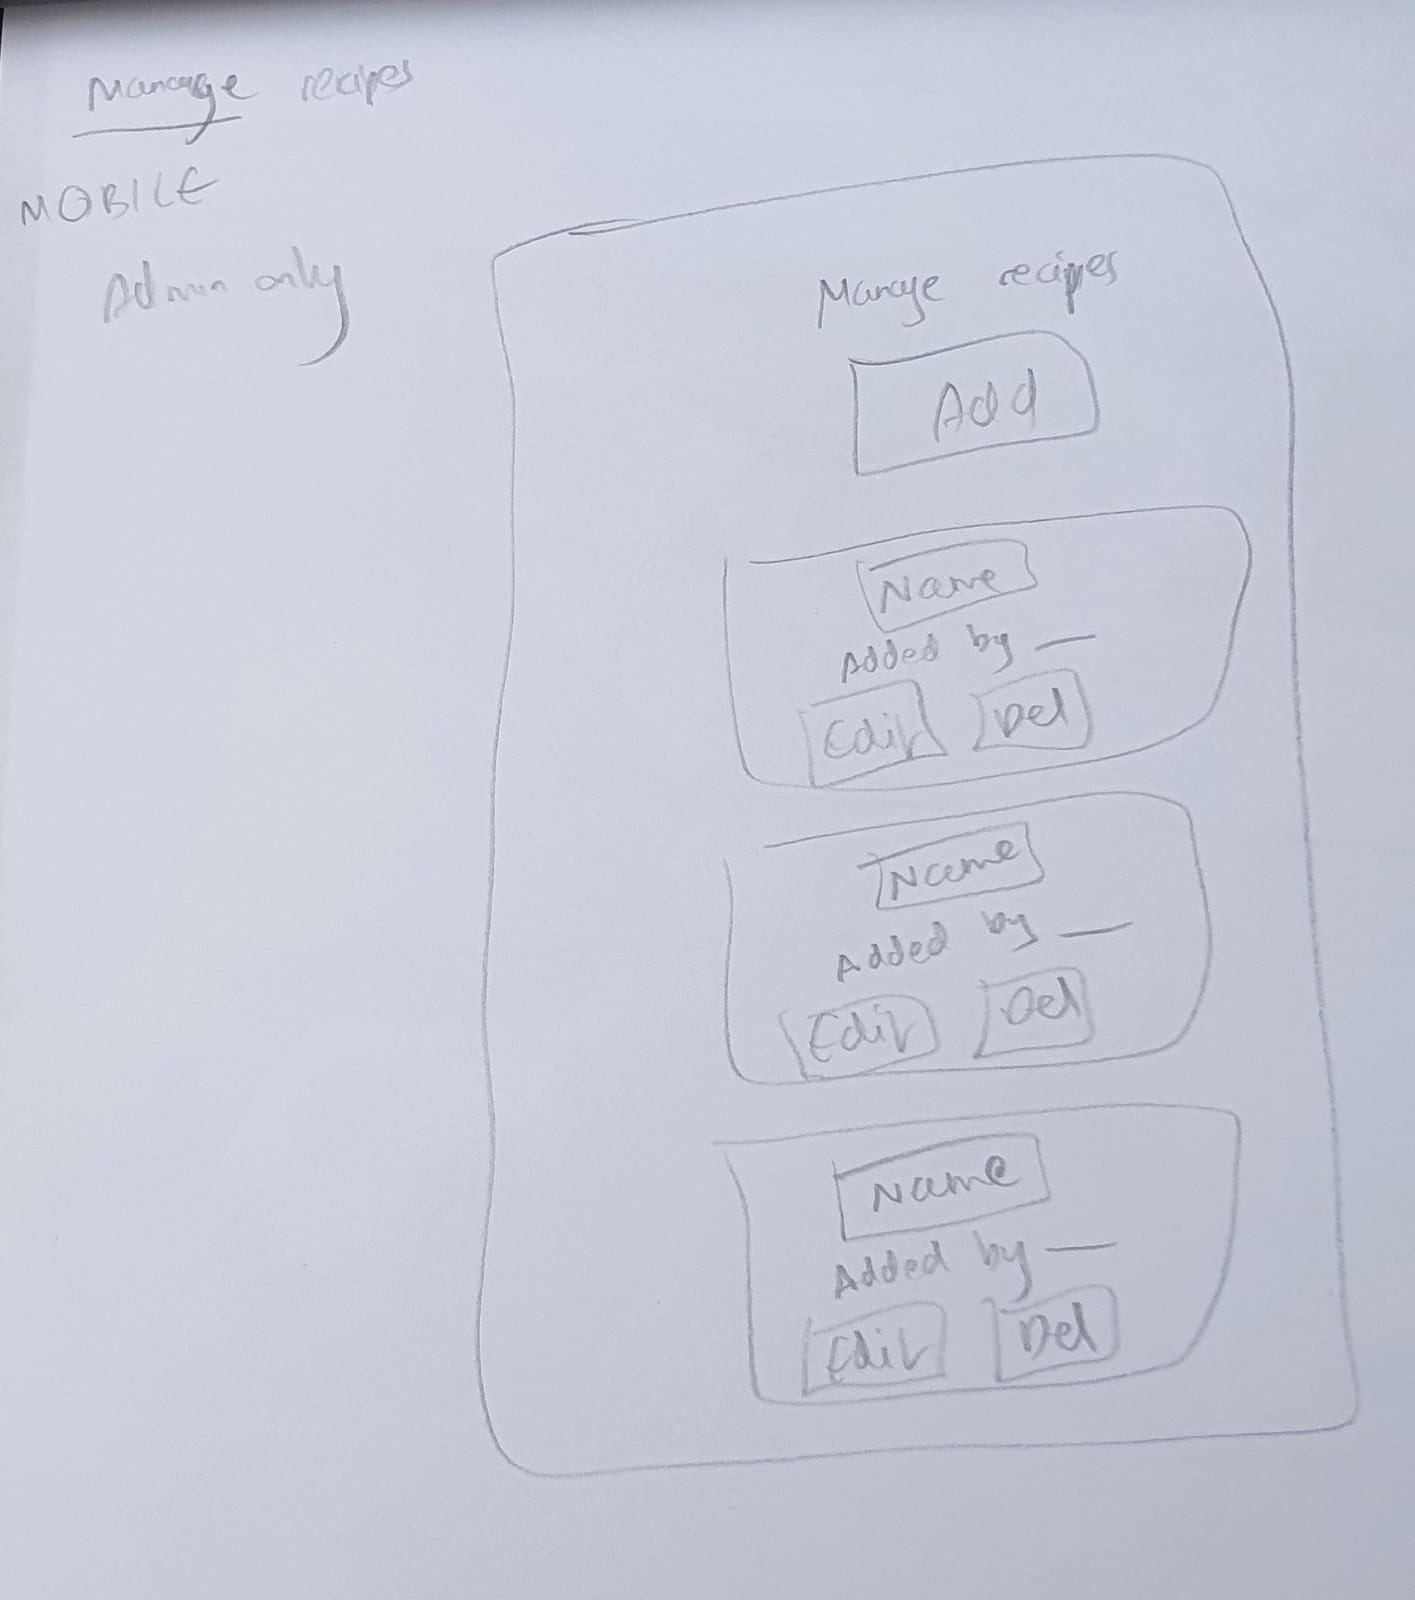 Manage recipes
MOBILE
Admin only
Manage recipes
Add
Name
Added by —
Edit Del
Name
Added by —
Edit Del
Name
Added by —
Edit Del